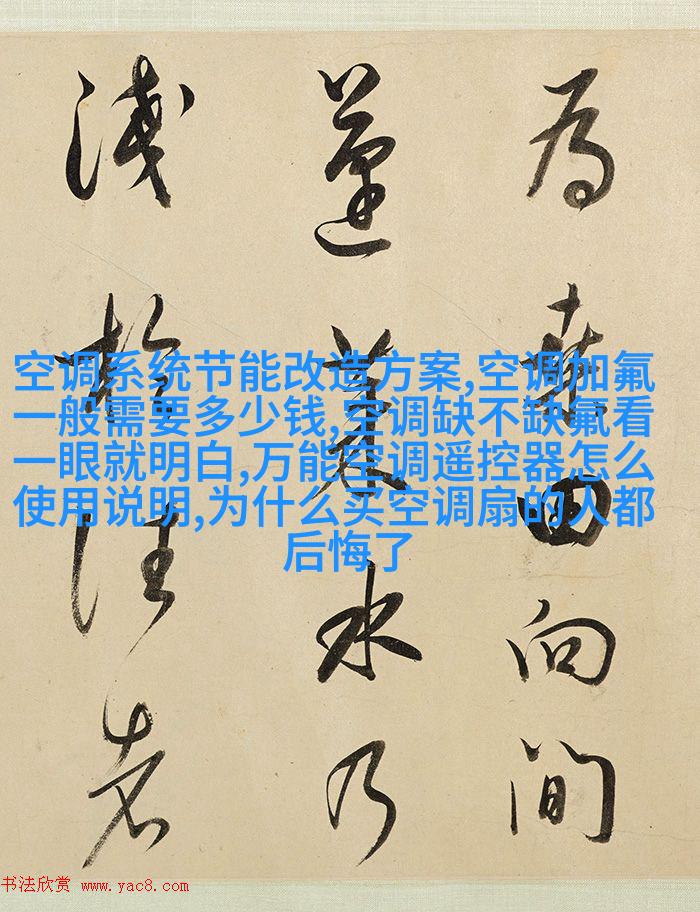 為桑田向間
蓬萊水乃
淺於往者
空调系统节能改造方案,空调加氟
一般需要多少钱,空调缺不缺氟看
一眼就明白,万能空调遥控器怎么
使用说明,为什么买空调扇的人都
后悔了
书法欣赏 www.yac8.com